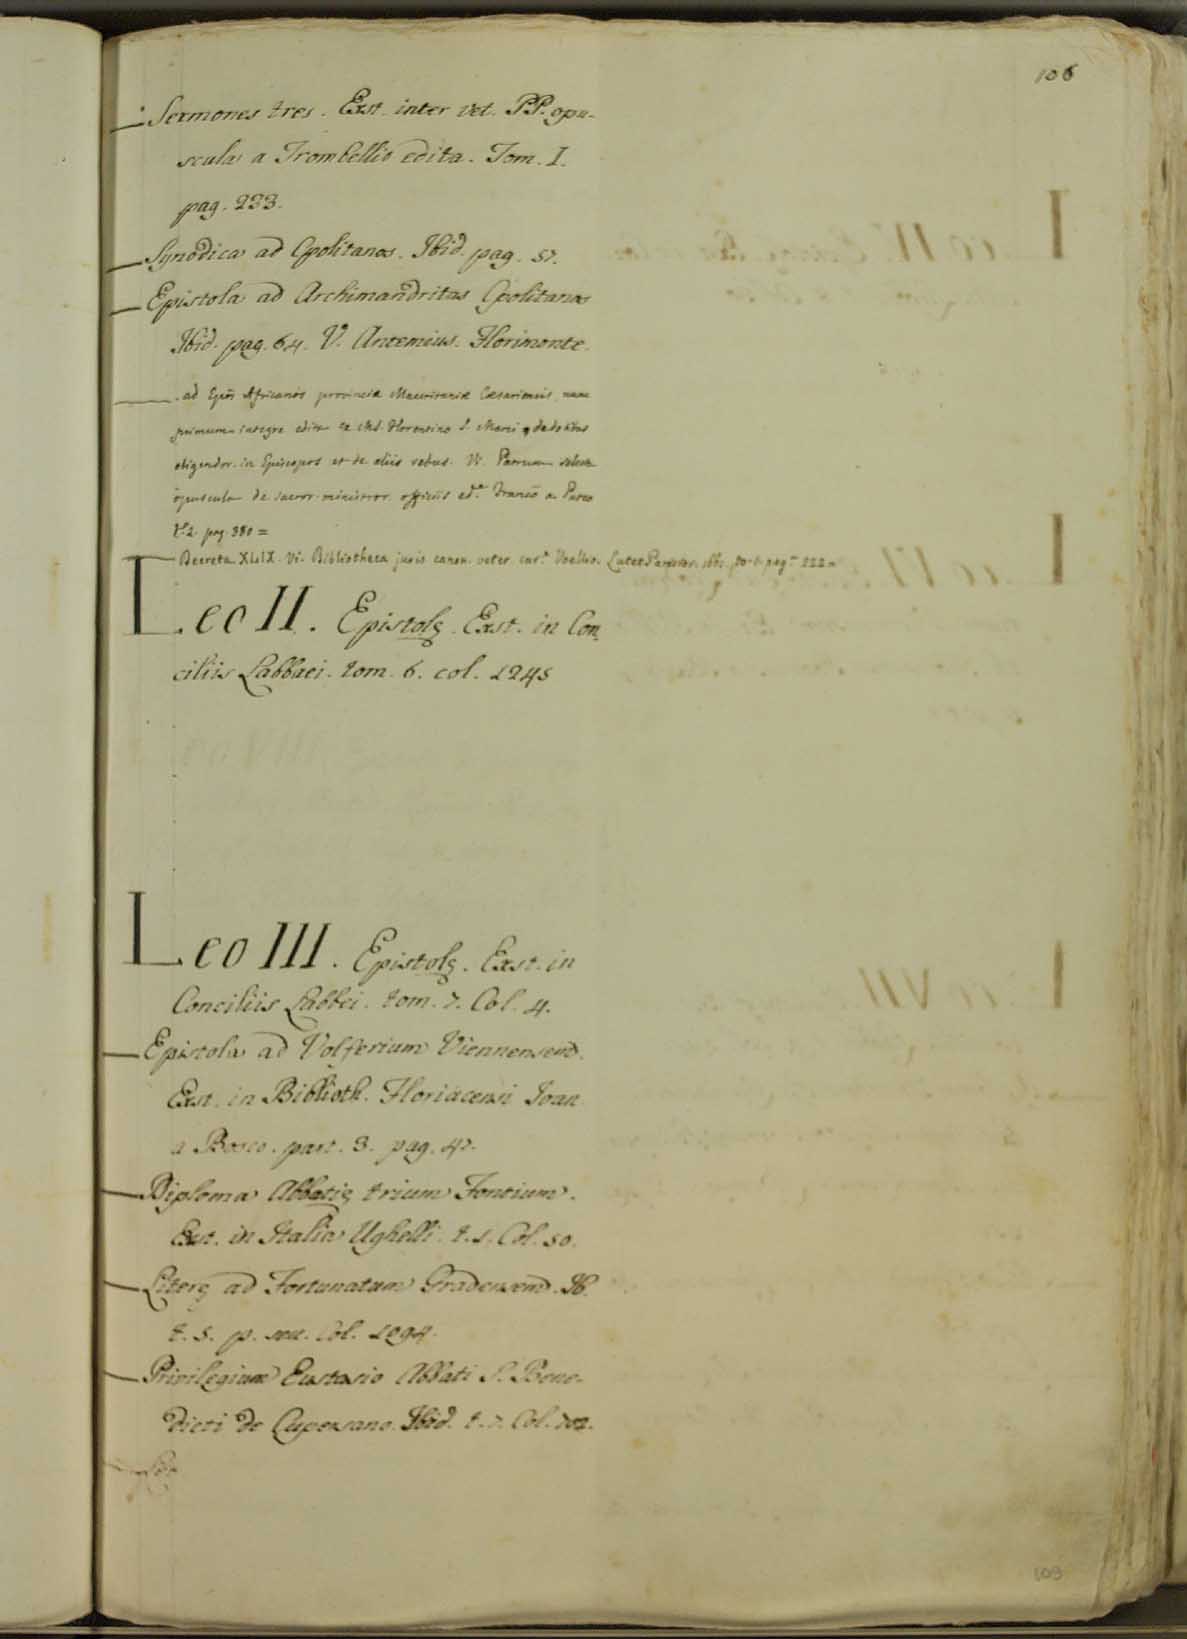 106
Sermones tres. Exst. inter vet. PP. opu-
scula a Trombellio edita. Tom. I.
pag. 233.
Synodica ad Cpolitanos. Ibid. pag. 57.
Epistola ad Archimandritas Cpolitanos
Ibid. pag. 64. V. Antemius. Florimonte.
ad Epos Africanos provinciæ Mauritaniæ Cæsariensis nunc
primum integre edita ex Ms. Florentino S. Marci,
eligendor. in Episcopos et de aliis rebus. V. Patrum selecta
opuscula de sacror. ministror. officiis ed.
t. 2. pag. 380 =
Decreta XLIX. Vi. Bibliotheca juris canon. veter. Voellio. Lutet. Parisior. 1661. to. 1. pag. 222 =
Leo II. Epistolę. Exst. in Con
ciliis Labbaei. tom. 6. col. 1245
Leo III. Epistolę. Exst. in
Conciliis Labbei. tom. 7. Col. 4.
Epistola ad Volferium Viennensem.
Exst. in Biblioth. Floriacensi Ioan
a Bosco. part. 3. pag. 42.
Diploma Abbatię trium Fontium.
Exst. in Italia Ughelli. t. 1. Col. 50.
Literę ad Fortunatum Gradensem. Ib.
t. 5. p. Col. 1094.
Privilegium Eustasio Abbati S. Bene-
dicti de Cupersano. Ibid. t. 7. Col. 702.
109